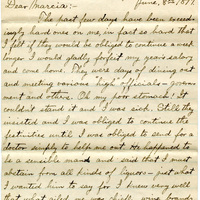 Dear Marcia:- June, 8th 1899.
The past few days have been exceed-
ingly hard ones on me, in fact so hard that
I felt if they would be obliged to continue a week
longer I would gladly forfeit my year's salary
and come home. They were days of dining out
and meeting various high officials - govern-
ment and others. Oh my poor stomach! It
couldn't stand it and I was sick. Still they
insisted and I was obliged to continue the
festivities until I was obliged to send for a
doctor simply to help me out. He happened to
be a sensible man and said that I must
abstain from all kinds of liquors - just what
I wanted him to say for I knew very well
that what ailed me was wine